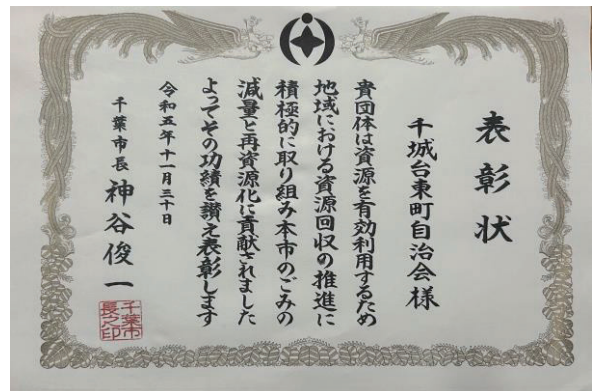 表彰状
千城台東町自治会様
貴団体は資源を有効利用するため
地域における資源回収の推進に
積極的に取り組み本市のごみの
減量と再資源化に貢献されました
よってその功績を讃え表彰します
令和五年十一月三十日
千葉市長 神谷俊一
千葉市長之印